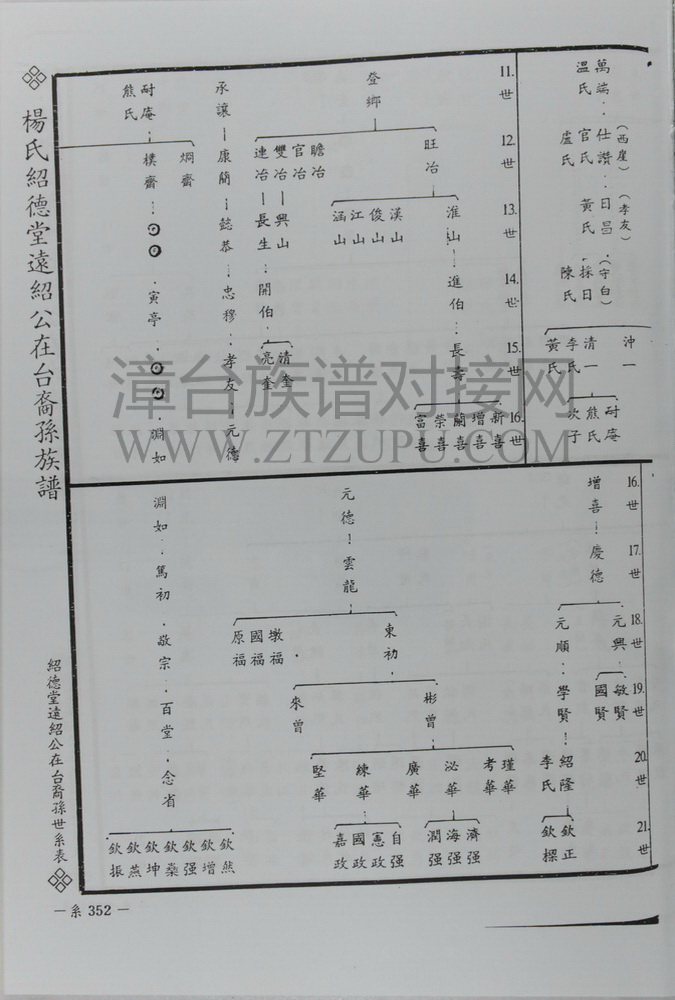 楊氏紹德堂遠紹公在台裔孫族譜
紹德堂遠紹公在台裔孫世系表
—系 352 —
萬端 溫氏
(西崖) 仕讚 官氏 盧氏
(孝友) 日昌 黃氏
(守白) 採日 陳氏
沖一
清一 李氏 黃氏
耐庵 熊氏 次子
11.世
12.世
13.世
14.世
15.世
16.世
登鄉
旺冶
瞻冶 官冶 雙冶 連冶
淮山
漢山 俊山 江山 涵山
興山
長生
進伯
開伯
長壽
清奎 亮奎
新喜 增喜 蘭喜 榮喜 富喜
承讓 康簡 懿恭 忠穆 孝友 元德
耐庵 熊氏
炯齋
樸齋 寅亭 淵如
16.世
17.世
18.世
19.世
20.世
21.世
增喜 慶德
元興 元順
敏賢 國賢
學賢
紹隆 李氏
欽正 欽樑
元德 雲龍
東初
墩福 國福 原福
彬曾
來曾
瑾華 考華 泌華 廣華 練華 堅華
濟强 海强 潤强
自强 憲政 國政 嘉政
淵如 篤初 敬宗 百堂 念省
欽然 欽增 欽强 欽燊 欽坤 欽燕 欽振
漳台族谱对接网
WWW.ZTZUPU.COM